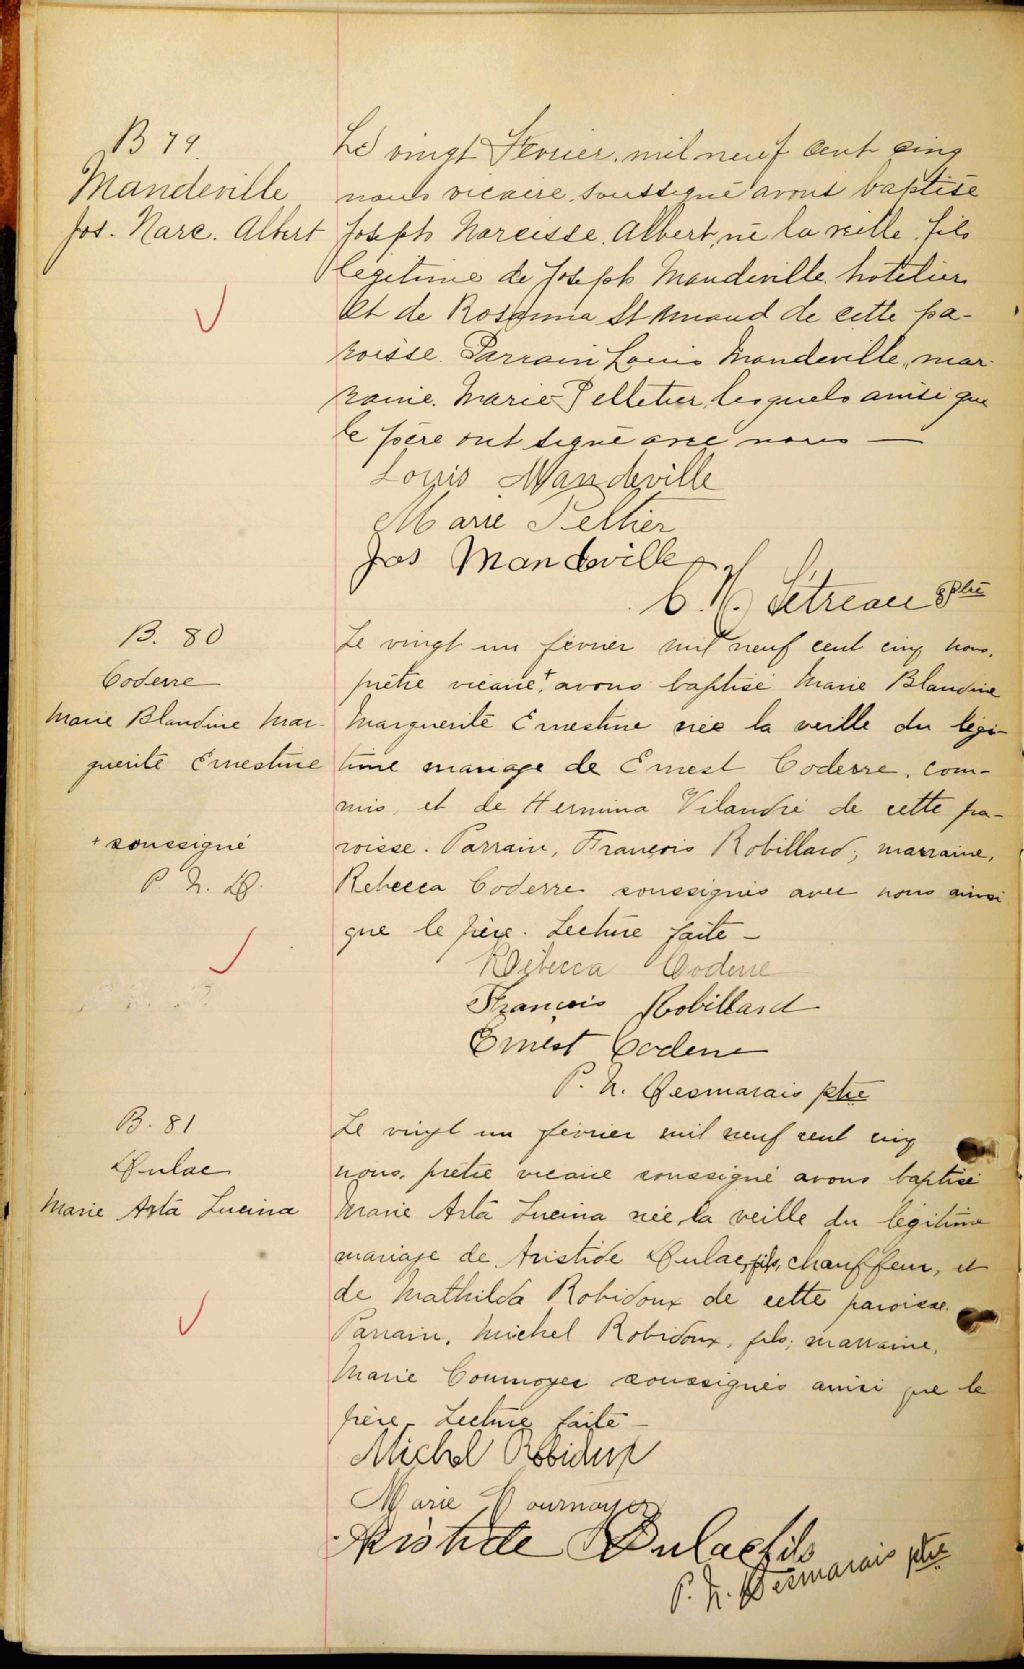 B 79
Mandeville
Jos. Narc. Albert
Le vingt Février, mil neuf cent cinq
nous vicaire soussigné avons baptisé
Joseph Narcisse Albert, né la veille, fils
légitime de Joseph Mandeville hotelier
et de Rosanna St Arnaud de cette pa-
roisse. Parrain Louis Mandeville, mar-
raine. Marie Pelletier, lesquels ainsi que
le père ont signé avec nous —
Louis Mandeville
Marie Peltier
Jos Mandeville
C. H. Sétreau Ptre
B. 80
Coderre
Marie Blandine Mar-
guerite Ernestine
+ soussigné
P. N. D.
Le vingt un février mil neuf cent cinq nous,
prêtre vicaire+, avons baptisé Marie Blandine
Marguerite Ernestine née la veille du légi-
time mariage de Ernest Coderre, com-
mis, et de Hermina Vilandré de cette pa-
roisse. Parrain, François Robillard; marraine,
Rebecca Coderre soussignés avec nous ainsi
que le père. Lecture faite —
Rébecca Coderre
François Robillard
Ernest Coderre
P. N. Desmarais ptre
B. 81
Dulac
Marie Asta Lucina
Le vingt un février mil neuf cent cinq
nous, prêtre vicaire soussigné avons baptisé
Marie Asta Lucina née la veille du légitime
mariage de Aristide Dulac, fils, chauffeur, et
de Mathilda Robidoux de cette paroisse.
Parrain, Michel Robidoux, fils; marraine,
Marie Cournoyer soussignés ainsi que le
père — Lecture faite —
Michel Robidux
Marie Cournoyer
Aristide Dulac fils
P. N. Desmarais ptre